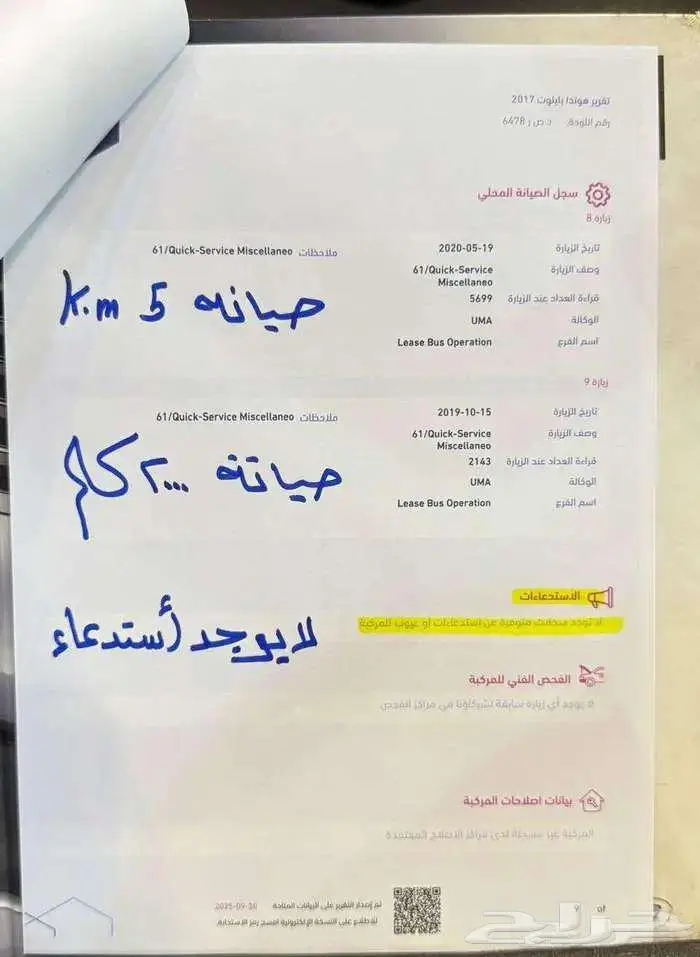 تقرير هوندا بايلوت 2017
رقم اللوحة: د ص ر 6478
سجل الصيانة المحلي
زيارة 8
تاريخ الزيارة 2020-05-19 ملاحظات 61/Quick-Service Miscellaneo
وصف الزيارة 61/Quick-Service
Miscellaneo
قراءة العداد عند الزيارة 5699
الوكالة UMA
اسم الفرع Lease Bus Operation
صيانه 5 K.m
زيارة 9
تاريخ الزيارة 2019-10-15 ملاحظات 61/Quick-Service Miscellaneo
وصف الزيارة 61/Quick-Service
Miscellaneo
قراءة العداد عند الزيارة 2143
الوكالة UMA
اسم الفرع Lease Bus Operation
صيانه ٢٠٠٠ كلم
الاستدعاءات
لا توجد سجلات متوفرة عن استدعاءات أو عيوب للمركبة
لا يوجد أستدعاء
الفحص الفني للمركبة
لا يوجد أي زيارة سابقة لشركاؤنا في مراكز الفحص
بيانات اصلاحات المركبة
المركبة غير مسجلة لدى مراكز الاصلاح المعتمدة
تم إصدار التقرير على البيانات المتاحة
للاطلاع على النسخة الإلكترونية امسح رمز الاستجابة.
9 of
حراج